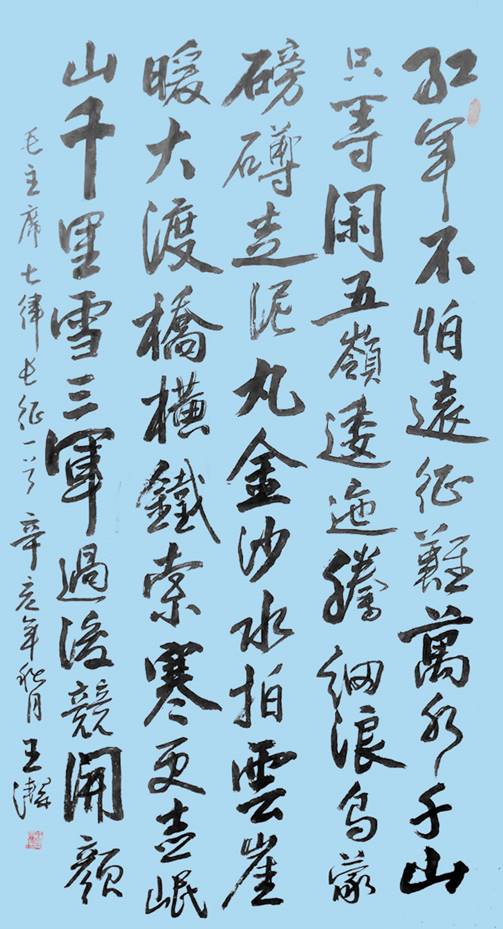 红军不怕遠征難萬水千山
只等閑五嶺逶迤騰細浪烏蒙
磅礴走泥丸金沙水拍雲崖
暖大渡橋橫鐵索寒更喜岷
山千里雪三軍過後競開顏
毛主席七律長征一首 辛亥年秋月 王